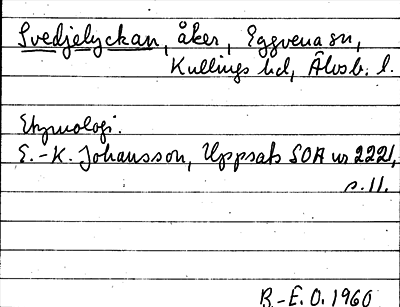 Svedjelyckan, åker, Eggvena sn,
Kullings hd, Älvsb. l.
Etymologi.
E.-K. Johansson, Uppsats SOA nr 2221,
s.11.
B.-E. O. 1960